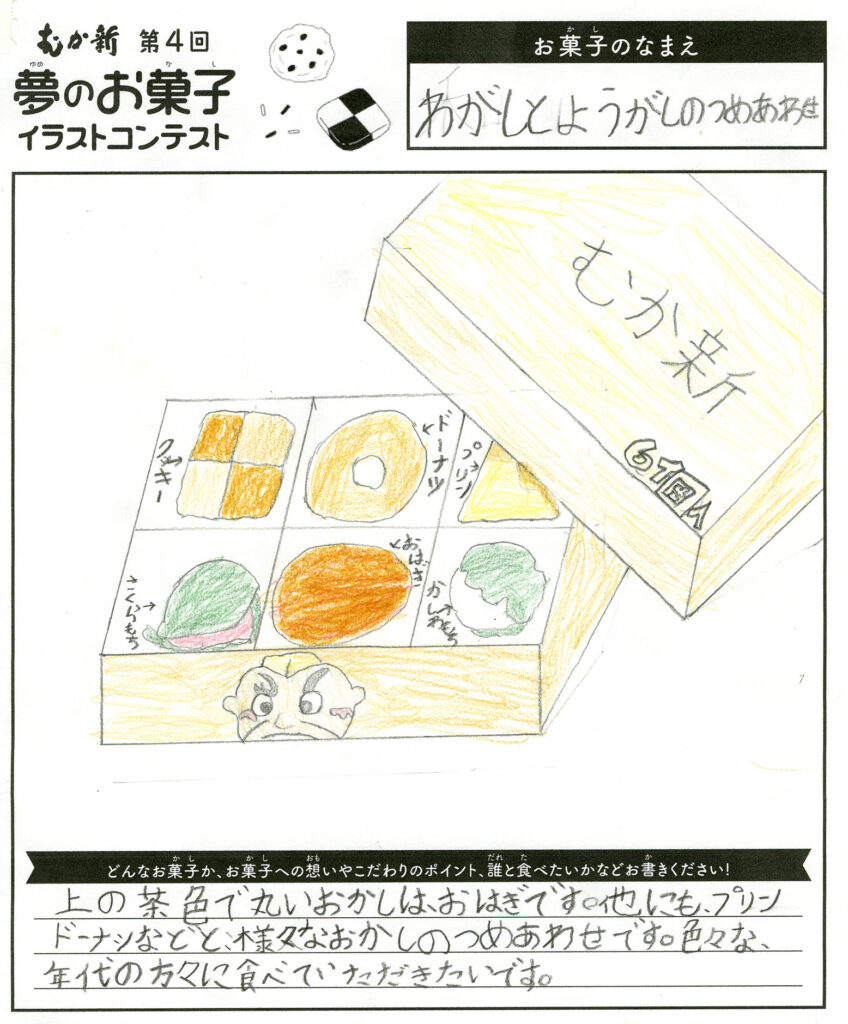 むか新 第4回
夢のお菓子
イラストコンテスト
お菓子のなまえ
わがしとようがしのつめあわせ
むか新
6個入
クッキー
ドーナツ
プリン
さくらもち
おはぎ
かしわもち
どんなお菓子か、お菓子への想いやこだわりのポイント、誰と食べたいかなどお書きください!
上の茶色で丸いおかしは、おはぎです。他にも、プリン
ドーナツなどと、様々なおかしのつめあわせです。色々な、
年代の方々に食べていただきたいです。